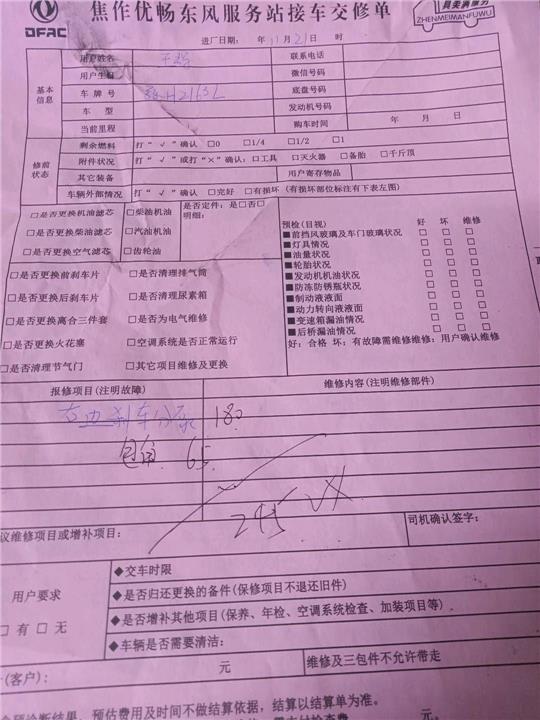 DFAC
焦作优畅东风服务站接车交修单
真美满服务
ZHENMEIMANFUWU
进厂日期: 年11月21日 时
基本信息
用户姓名 联系电话
用户生日 微信号码
车牌号 H2163L 底盘号码
车 型 发动机号码
当前里程 购车时间 年 月 日
修前状态
剩余燃料 打“√”确认 □0 □1/4 □1/2 □1
附件状况 打“√”或打“×”确认:□工具 □灭火器 □备胎 □千斤顶
其它装备 用户寄存物品
车辆外部情况 打“√”确认 □完好 □有损坏 (有损坏部位标注有下表左图)
□是否更换机油滤芯 □柴油机油 是否定件:是□否□
明细:
□是否更换柴油滤芯 □汽油机油
□是否更换空气滤芯 □齿轮油
□是否更换前刹车片 □是否清理排气筒
□是否更换后刹车片 □是否清理尿素箱
□是否更换离合三件套 □是否为电气维修
□是否更换火花塞 □空调系统是否正常运行
□是否清理节气门 □其它项目维修及更换
预检(目视) 好 坏 维修
■前挡风玻璃及车门玻璃状况 □ □ □
■灯具情况 □ □ □
■油量状况 □ □ □
■轮胎状况 □ □ □
■发动机机油状况 □ □ □
■防冻防锈瓶状况 □ □ □
■制动液液面 □ □ □
■动力转向液液面 □ □ □
■变速箱漏油情况 □ □ □
■后桥漏油情况 □ □ □
好:合格 坏:有故障需维修维修:用户确认维修
报修项目(注明故障) 维修内容(注明维修部件)
刹车分泵 180
65
245
议维修项目或增补项目: 司机确认签字:
用户要求
□有□无
◆交车时限
◆是否归还更换的备件(保修项目不退还旧件)
◆是否增补其他项目(保养、年检、空调系统检查、加装项目等)
◆车辆是否需要清洁:
(客户): 元 维修及三包件不允许带走
诊断结果、预估费用及时间不做结算依据,结算以结算单为准。
元。